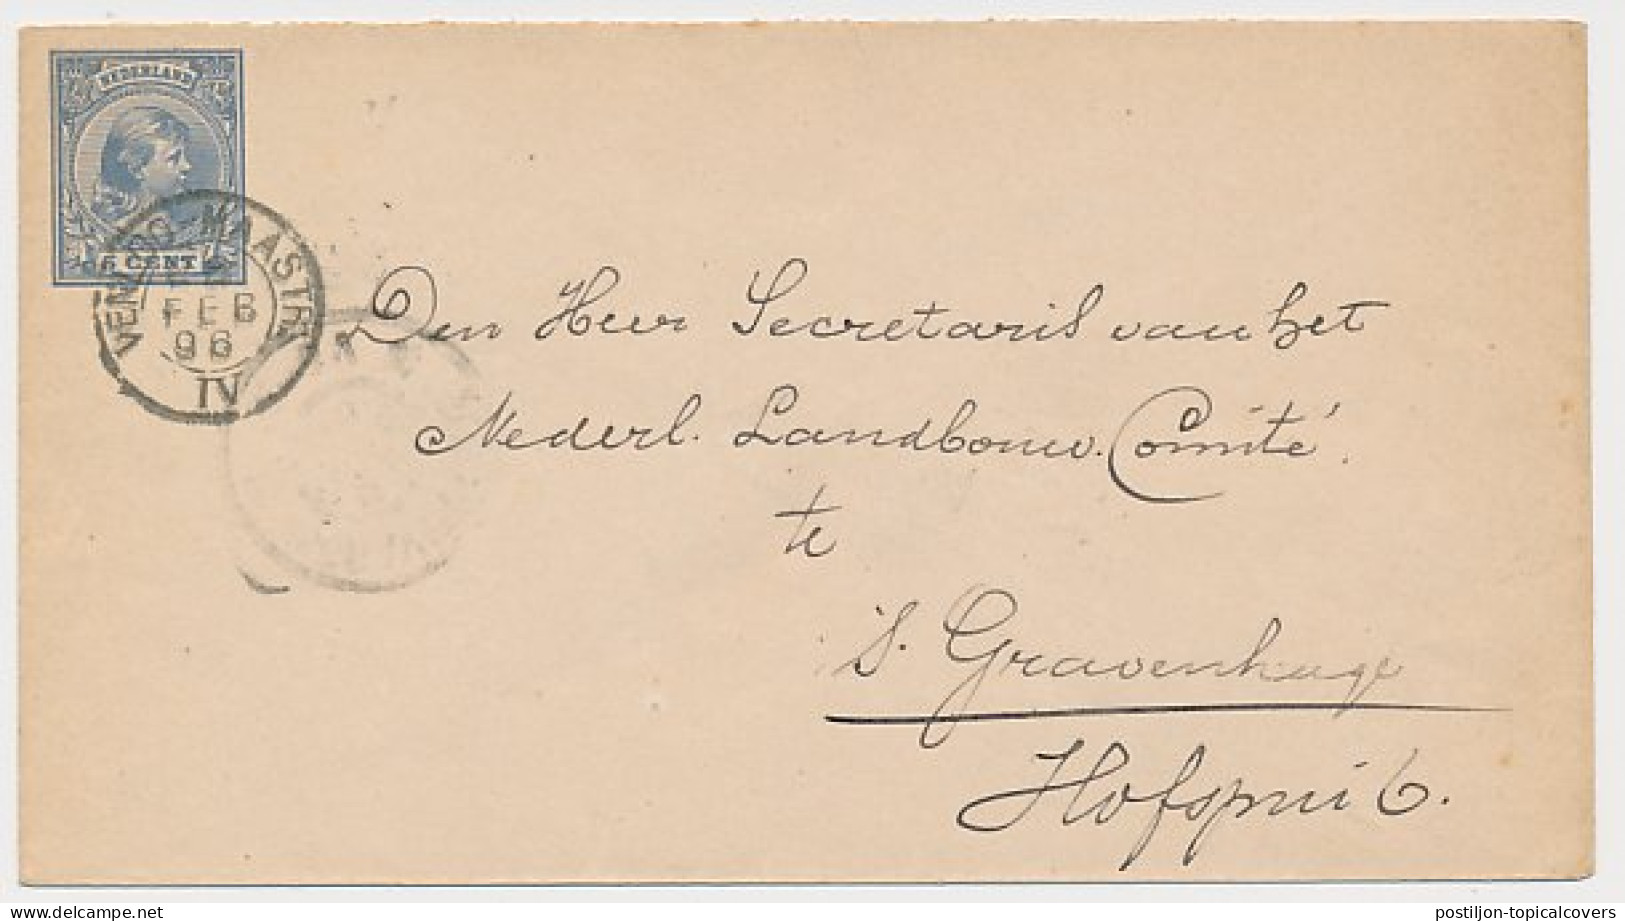 NEDERLAND
5 CENT
VENLOO-MAASTR
FEB
96
IV
Den Heer Secretaris van het
Nederl. Landbouw. Comité.
te
's. Gravenhage
Hofspui 6.
postiljon-topicalcovers